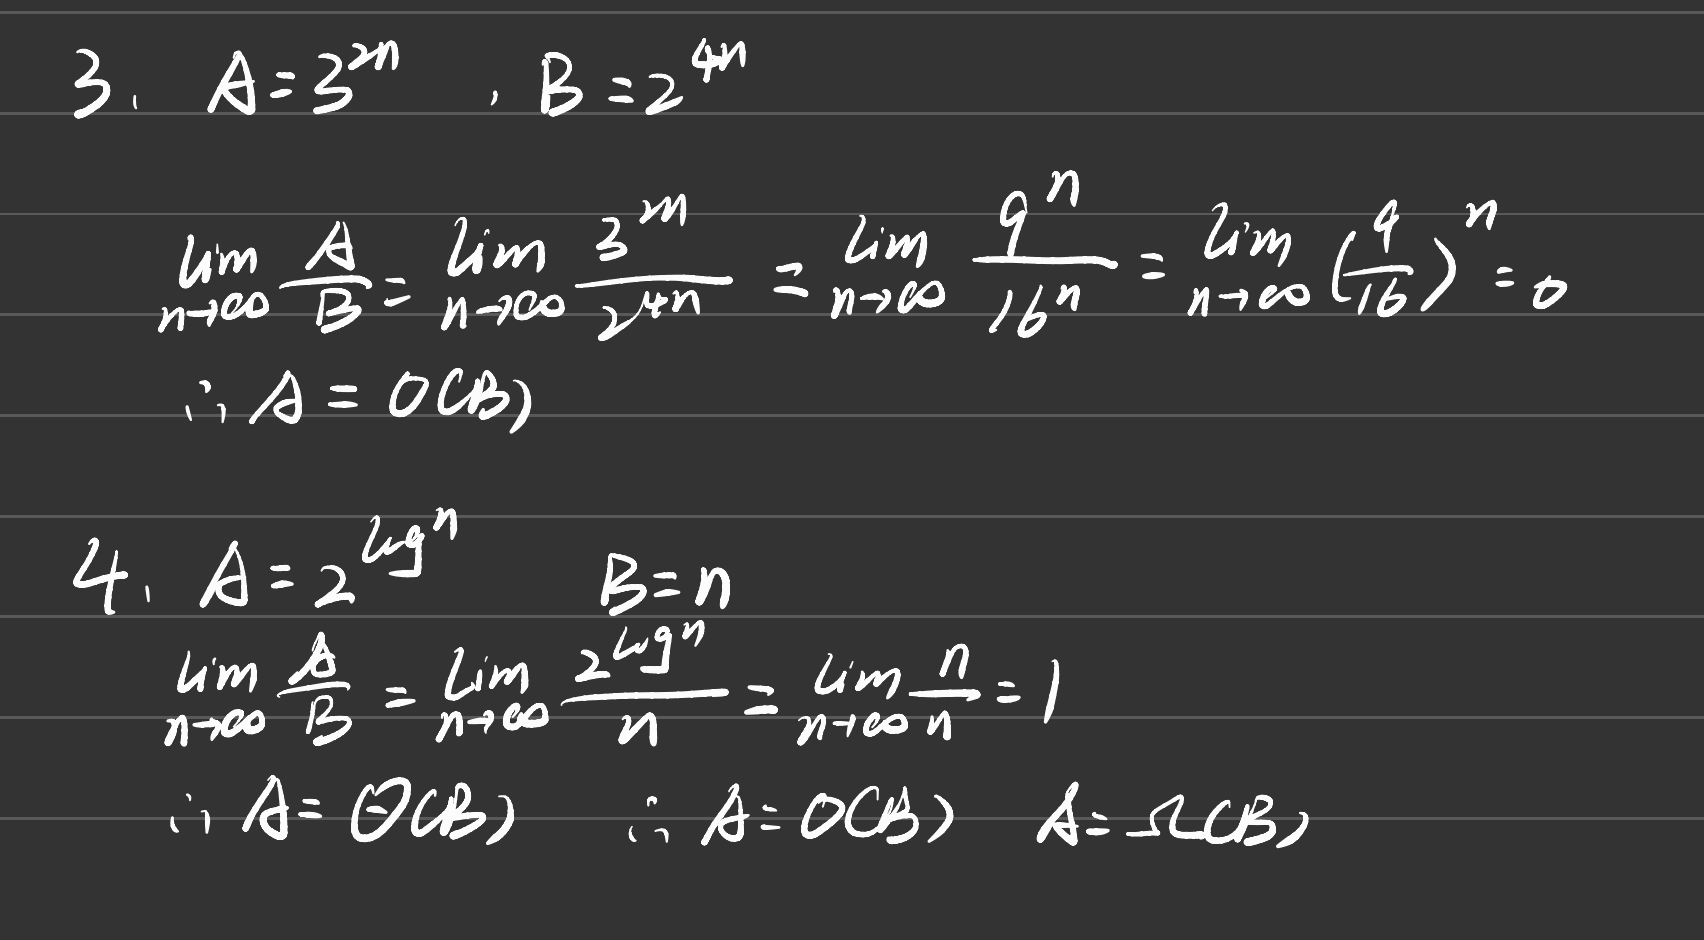 3. A = 3^{2n} , B = 2^{4n}
lim_{n→∞} A/B = lim_{n→∞} 3^{2n}/2^{4n} = lim_{n→∞} 9^n/16^n = lim_{n→∞} (9/16)^n = 0
∴ A = O(B)
4. A = 2^{log n} B = n
lim_{n→∞} A/B = lim_{n→∞} 2^{log n}/n = lim_{n→∞} n/n = 1
∴ A = Θ(B) ∴ A = O(B) A = Ω(B)